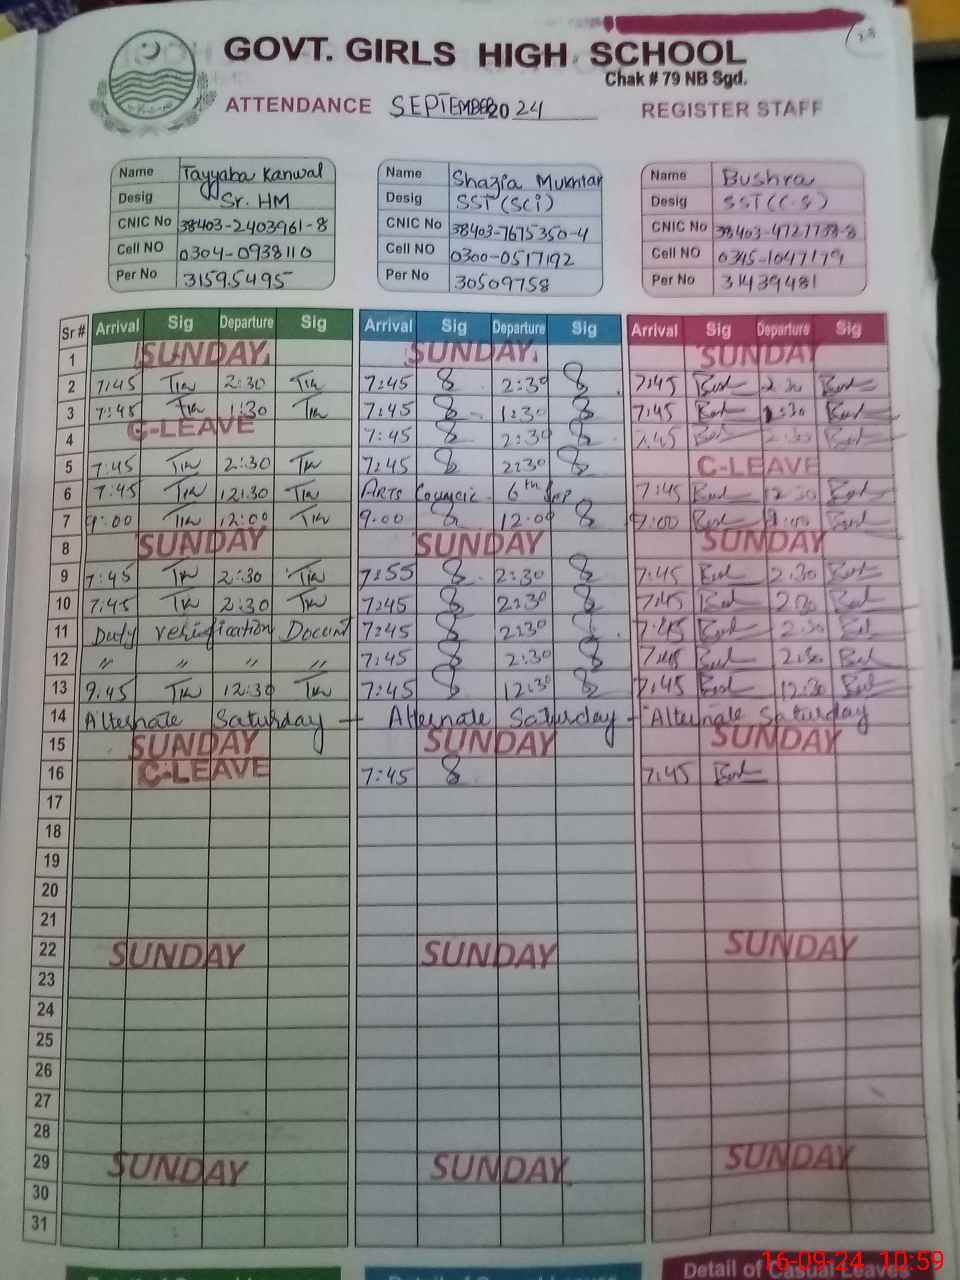 28
GOVT. GIRLS HIGH SCHOOL
Chak # 79 NB Sgd.
ATTENDANCE SEPTEMBER 2024 REGISTER STAFF
Name Tayyaba Kanwal Name Shazia Mukhtar Name Bushra
Desig Sr. HM Desig SST (Sci) Desig SST (C.S)
CNIC No 38403-2403961-8 CNIC No 38403-7675350-4 CNIC No 38403-4727738-8
Cell NO 0304-0938110 Cell NO 0300-0517192 Cell NO 0345-1047179
Per No 31595495 Per No 30509758 Per No 31439481
Sr # Arrival Sig Departure Sig Arrival Sig Departure Sig Arrival Sig Departure Sig
1 SUNDAY SUNDAY SUNDAY
2 7:45 2:30 7:45 2:30 7:45 2:30
3 7:45 1:30 7:45 1:30 7:45 1:30
4 C-LEAVE 7:45 2:30 7:45 2:30
5 7:45 2:30 7:45 2:30 C-LEAVE
6 7:45 12:30 Arts Council 6th Sep 7:45 12:30
7 9:00 12:00 9:00 12:00 9:00
8 SUNDAY SUNDAY SUNDAY
9 7:45 2:30 7:55 2:30 7:45 2:30
10 7:45 2:30 7:45 2:30 7:45 2:30
11 Duty verification 7:45 2:30 7:45 2:30
12 " " " " 7:45 2:30 7:45 2:30
13 9:45 12:30 7:45 12:30 7:45 12:30
14 Alternate Saturday - Alternate Saturday - Alternate Saturday
15 SUNDAY SUNDAY SUNDAY
16 C-LEAVE 7:45 7:45
17
18
19
20
21
22 SUNDAY SUNDAY SUNDAY
23
24
25
26
27
28
29 SUNDAY SUNDAY SUNDAY
30
31
Detail of Casual Leaves
16-09-24 10:59